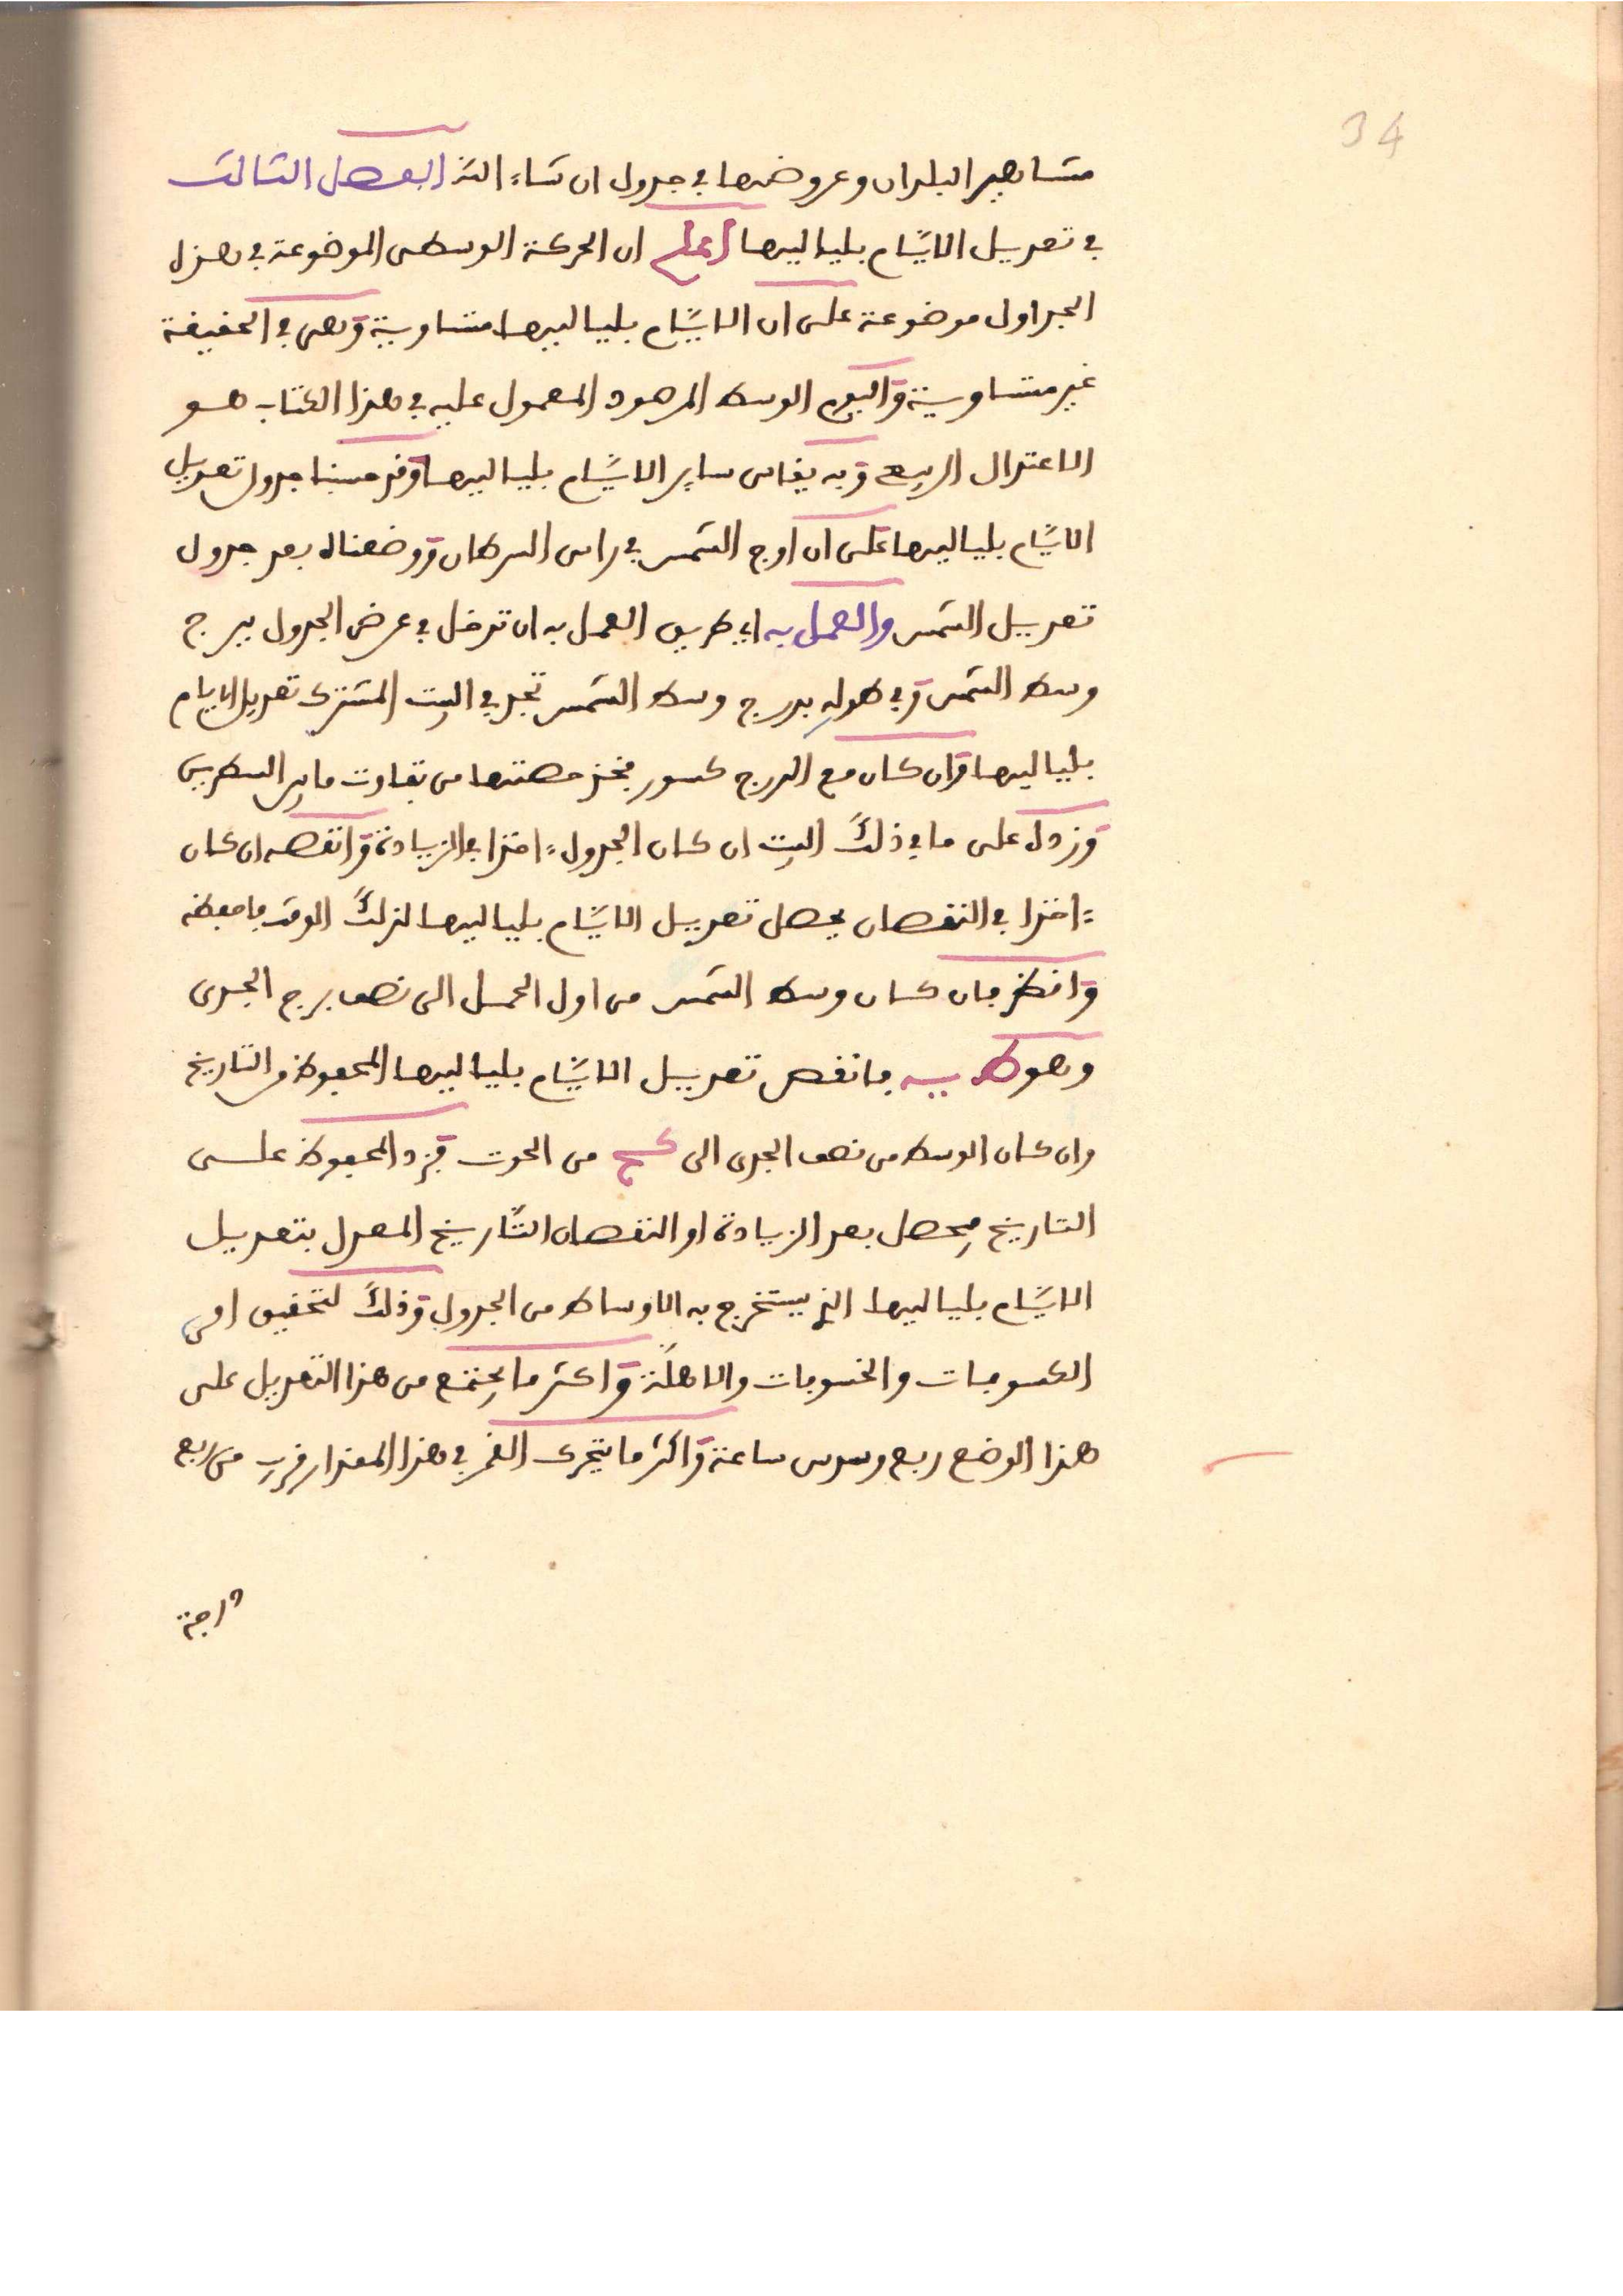 34
مشاهير البلدان وعروضها في جدول ان شاء الله الفصل الثالث
في تعديل الايام بلياليها اعلم ان الحركة الوسطى الموضوعة في هذه
الجداول موضوعة على ان الايام بلياليها متساوية وهى في الحقيقة
غير متساوية واليوم الوسط المرصود المعمول عليه في هذا الكتاب هو
الاعتدال الربيعي وبه يقاس ساير الايام بلياليها وقد حسبنا جدول تعديل
الايام بلياليها على ان اوج الشمس في راس السرطان ووضعناه بعد جدول
تعديل الشمس والعمل به اي طريق العمل به ان تدخل في عرض الجدول ببرج
وسط الشمس وفي طوله بدرج وسط الشمس تجد في البيت المشترك تعديل الايام
بلياليها وان كان مع الدرج كسور فخذ حصتها من تفاوت ما بين السطرين
وزده على ما في ذلك البيت ان كان الجدول ءاخذا في الزيادة وانقصه ان كان
ءاخذا في النقصان يحصل تعديل الايام بلياليها لذلك الوقت فاحفظه
وانظر فان كان وسط الشمس من اول الحمل الى نصف برج الجدى
وهو ط يه فانقص تعديل الايام بلياليها المحفوظ من التاريخ
وان كان الوسط من نصف الجدى الى كح من الحوت فزد المحفوظ على
التاريخ فيحصل بعد الزيادة او النقصان التاريخ المعدل بتعديل
الايام بلياليها الذي يستخرج به الاوساط من الجدول وذلك لتحقيق امر
الكسوفات والخسوفات والاهلة واكثر ما يجتمع من هذا التعديل على
هذا الوضع ربع وسدس ساعة واكثر ما يتحرك القمر في هذا المقدار قريب من ربع